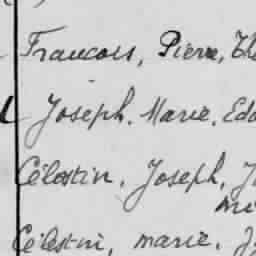 Francois, Pierre, Th
Joseph. Marie. Edo
Célestin, Joseph, J
Célestin, marie. J